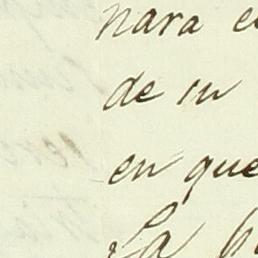 nara e
de in
en que
La p